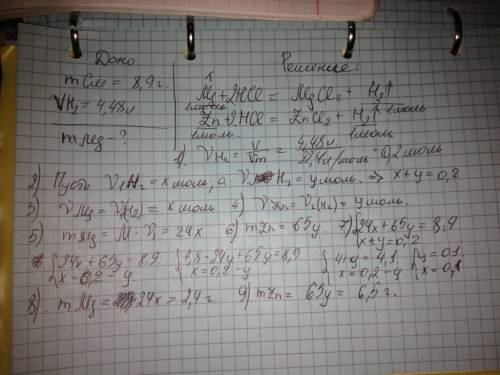 Дано Решение:
mсм = 8,9г.
VH₂ = 4,48л
mMg - ?
Mg + 2HCl = MgCl₂ + H₂↑
1моль 1моль
Zn + 2HCl = ZnCl₂ + H₂↑
1моль. 1моль
1) νH₂ = V/Vm = 4,48л/22,4л/моль = 0,2моль
2) Пусть ν₁H₂ = x моль, а ν₂H₂ = y моль. => x+y=0,2
3) νMg = ν₁(H₂) = x моль 4) νZn = ν₂(H₂) = y моль.
5) mMg = M·ν₁ = 24x 6) mZn = 65y 7) {24x+65y = 8,9
x+y=0,2
{24x+65y=8,9 {4,8-24y+65y=8,9 {41y = 4,1 {y=0,1
x=0,2-y x=0,2-y x=0,2-y x=0,1
8) mMg = 24x = 2,4г. 9) mZn = 65y = 6,5г.